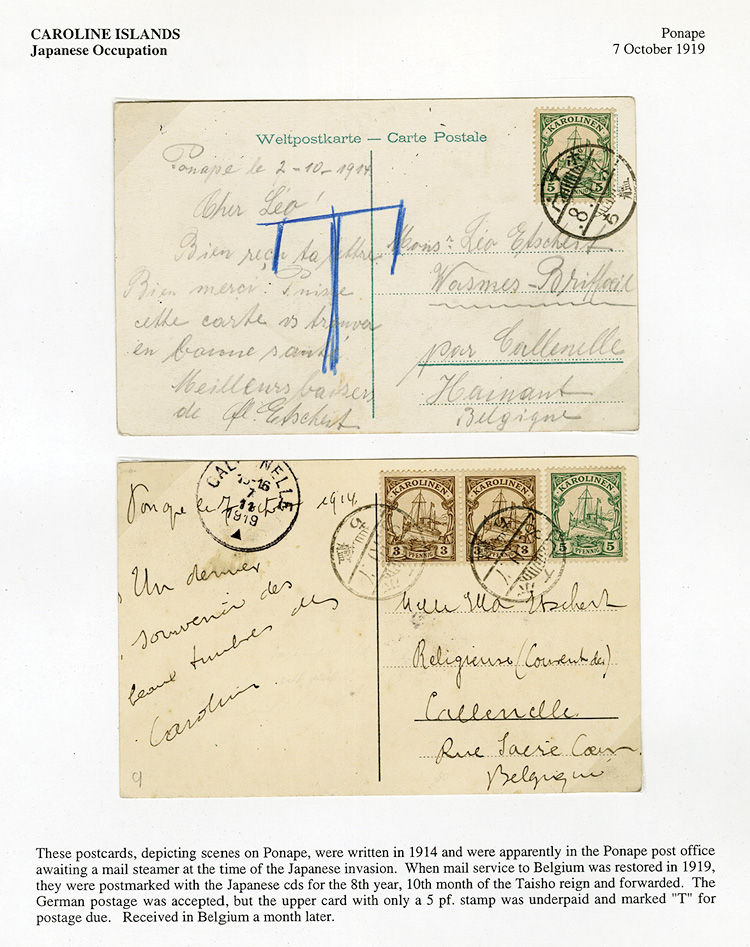 CAROLINE ISLANDS
Japanese Occupation
Ponape
7 October 1919
Weltpostkarte — Carte Postale
KAROLINEN
5 5
Ponapé le 2-10-1914
Cher Léo!
Bien reçu ta lettre
Bien merci. Puisse
cette carte vs trouver
en bonne santé
Meilleurs baisers
de Etscheit
T
Monsr Léo Etscheit
Wasmes-Briffoeil
par Callenelle
Hainaut
Belgique
CALLENELLE
7
11
1919
Ponape le 1914.
Un dernier
souvenir des
beaux timbres des
Carolines
KAROLINEN
3 PFENNIG 3
KAROLINEN
3 PFENNIG 3
KAROLINEN
5 PFENNIG 5
Etscheit
Religieuse (Couvent des)
Callenelle
Rue Sacré Coeur
Belgique
9
These postcards, depicting scenes on Ponape, were written in 1914 and were apparently in the Ponape post office
awaiting a mail steamer at the time of the Japanese invasion. When mail service to Belgium was restored in 1919,
they were postmarked with the Japanese cds for the 8th year, 10th month of the Taisho reign and forwarded. The
German postage was accepted, but the upper card with only a 5 pf. stamp was underpaid and marked "T" for
postage due. Received in Belgium a month later.